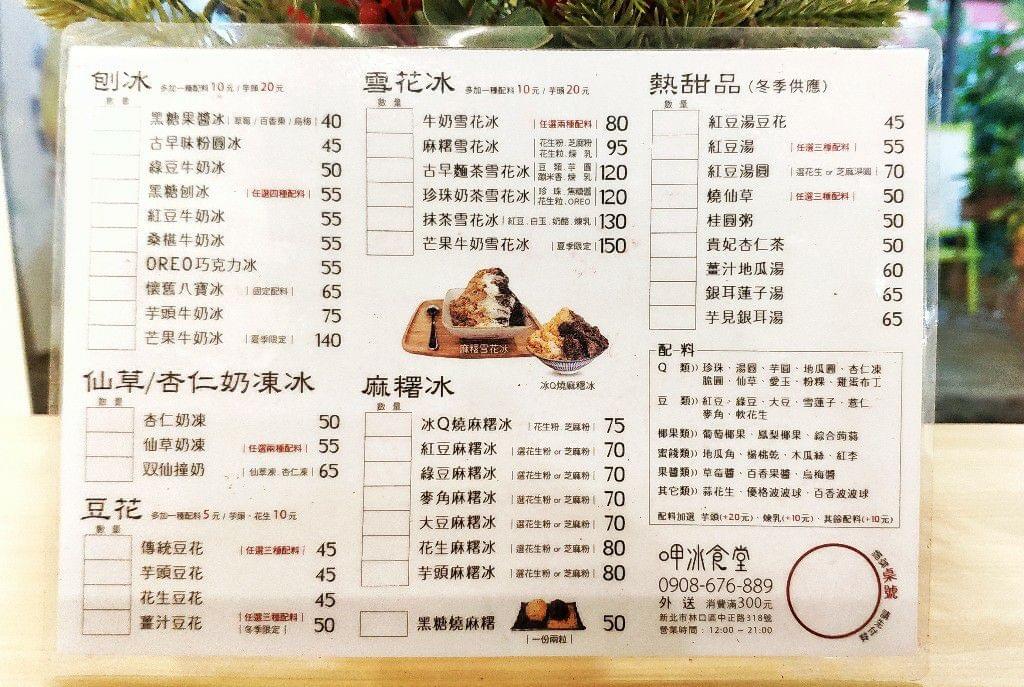 刨冰 多加一種配料10元 / 芋頭20元
數量
黑糖果醬冰 | 草莓 / 百香果 / 烏梅 | 40
古早味粉圓冰 45
綠豆牛奶冰 50
黑糖刨冰 | 任選四種配料 | 55
紅豆牛奶冰 55
桑椹牛奶冰 55
OREO巧克力冰 55
懷舊八寶冰 | 固定配料 | 65
芋頭牛奶冰 75
芒果牛奶冰 | 夏季限定 | 140
仙草/杏仁奶凍冰
數量
杏仁奶凍 50
仙草奶凍 | 任選兩種配料 | 55
双仙撞奶 | 仙草凍.杏仁凍 | 65
豆花 多加一種配料5元 / 芋頭、花生10元
數量
傳統豆花 | 任選三種配料 | 45
芋頭豆花 45
花生豆花 45
薑汁豆花 | 任選三種配料 | 50
| 冬季限定 |
雪花冰 多加一種配料 10元 / 芋頭20元
數量
牛奶雪花冰 | 任選兩種配料 | 80
麻糬雪花冰 | 花生粉.芝麻粉 花生粒.煉乳 | 95
古早麵茶雪花冰 | 豆類.芋圓 涮米香.煉乳 | 120
珍珠奶茶雪花冰 | 珍珠.焦糖醬 花生粒.OREO | 120
抹茶雪花冰 | 紅豆.白玉.奶酪.煉乳 | 130
芒果牛奶雪花冰 | 夏季限定 | 150
麻糬雪花冰
冰Q燒麻糬冰
麻糬冰
數量
冰Q燒麻糬冰 | 花生粉.芝麻粉 | 75
紅豆麻糬冰 | 選花生粉 or 芝麻粉 | 70
綠豆麻糬冰 | 選花生粉 or 芝麻粉 | 70
麥角麻糬冰 | 選花生粉 or 芝麻粉 | 70
大豆麻糬冰 | 選花生粉 or 芝麻粉 | 70
花生麻糬冰 | 選花生粉 or 芝麻粉 | 80
芋頭麻糬冰 | 選花生粉 or 芝麻粉 | 80
黑糖燒麻糬 50
| 一份兩粒 |
熱甜品 (冬季供應)
數量
紅豆湯豆花 45
紅豆湯 | 任選三種配料 | 55
紅豆湯圓 | 選花生 or 芝麻湯圓 | 70
燒仙草 | 任選三種配料 | 50
桂圓粥 50
貴妃杏仁茶 50
薑汁地瓜湯 60
銀耳蓮子湯 65
芋見銀耳湯 65
配料
Q 類)) 珍珠、湯圓、芋圓、地瓜圓、杏仁凍
脆圓、仙草、愛玉、粉粿、雞蛋布丁
豆 類)) 紅豆、綠豆、大豆、雪蓮子、薏仁
麥角、軟花生
椰果類)) 葡萄椰果、鳳梨椰果、綜合蒟蒻
蜜餞類)) 地瓜角、楊桃乾、木瓜絲、紅李
果醬類)) 草莓醬、百香果醬、烏梅醬
其它類)) 蒜花生、優格波波球、百香波波球
配料加選 芋頭(+20元)、煉乳(+10元)、其餘配料(+10元)
呷冰食堂
0908-676-889
外 送 消費滿300元
新北市林口區中正路318號
營業時間：12:00 ~ 21:00
桌號